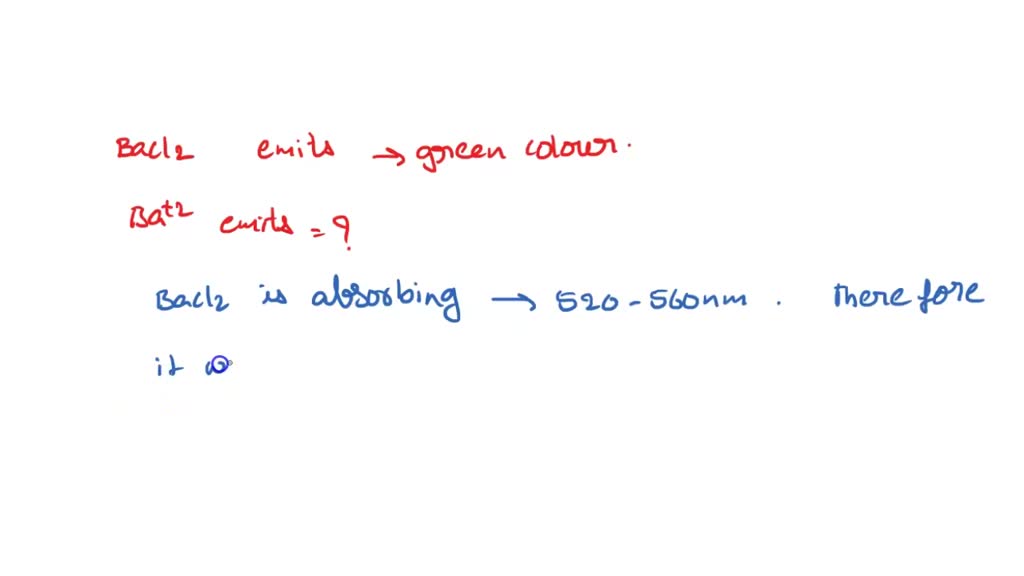 Bacl2 emits → green colour.
Ba+2 emits = ?
Bacl2 is absorbing → 520 - 560nm . Therefore
it